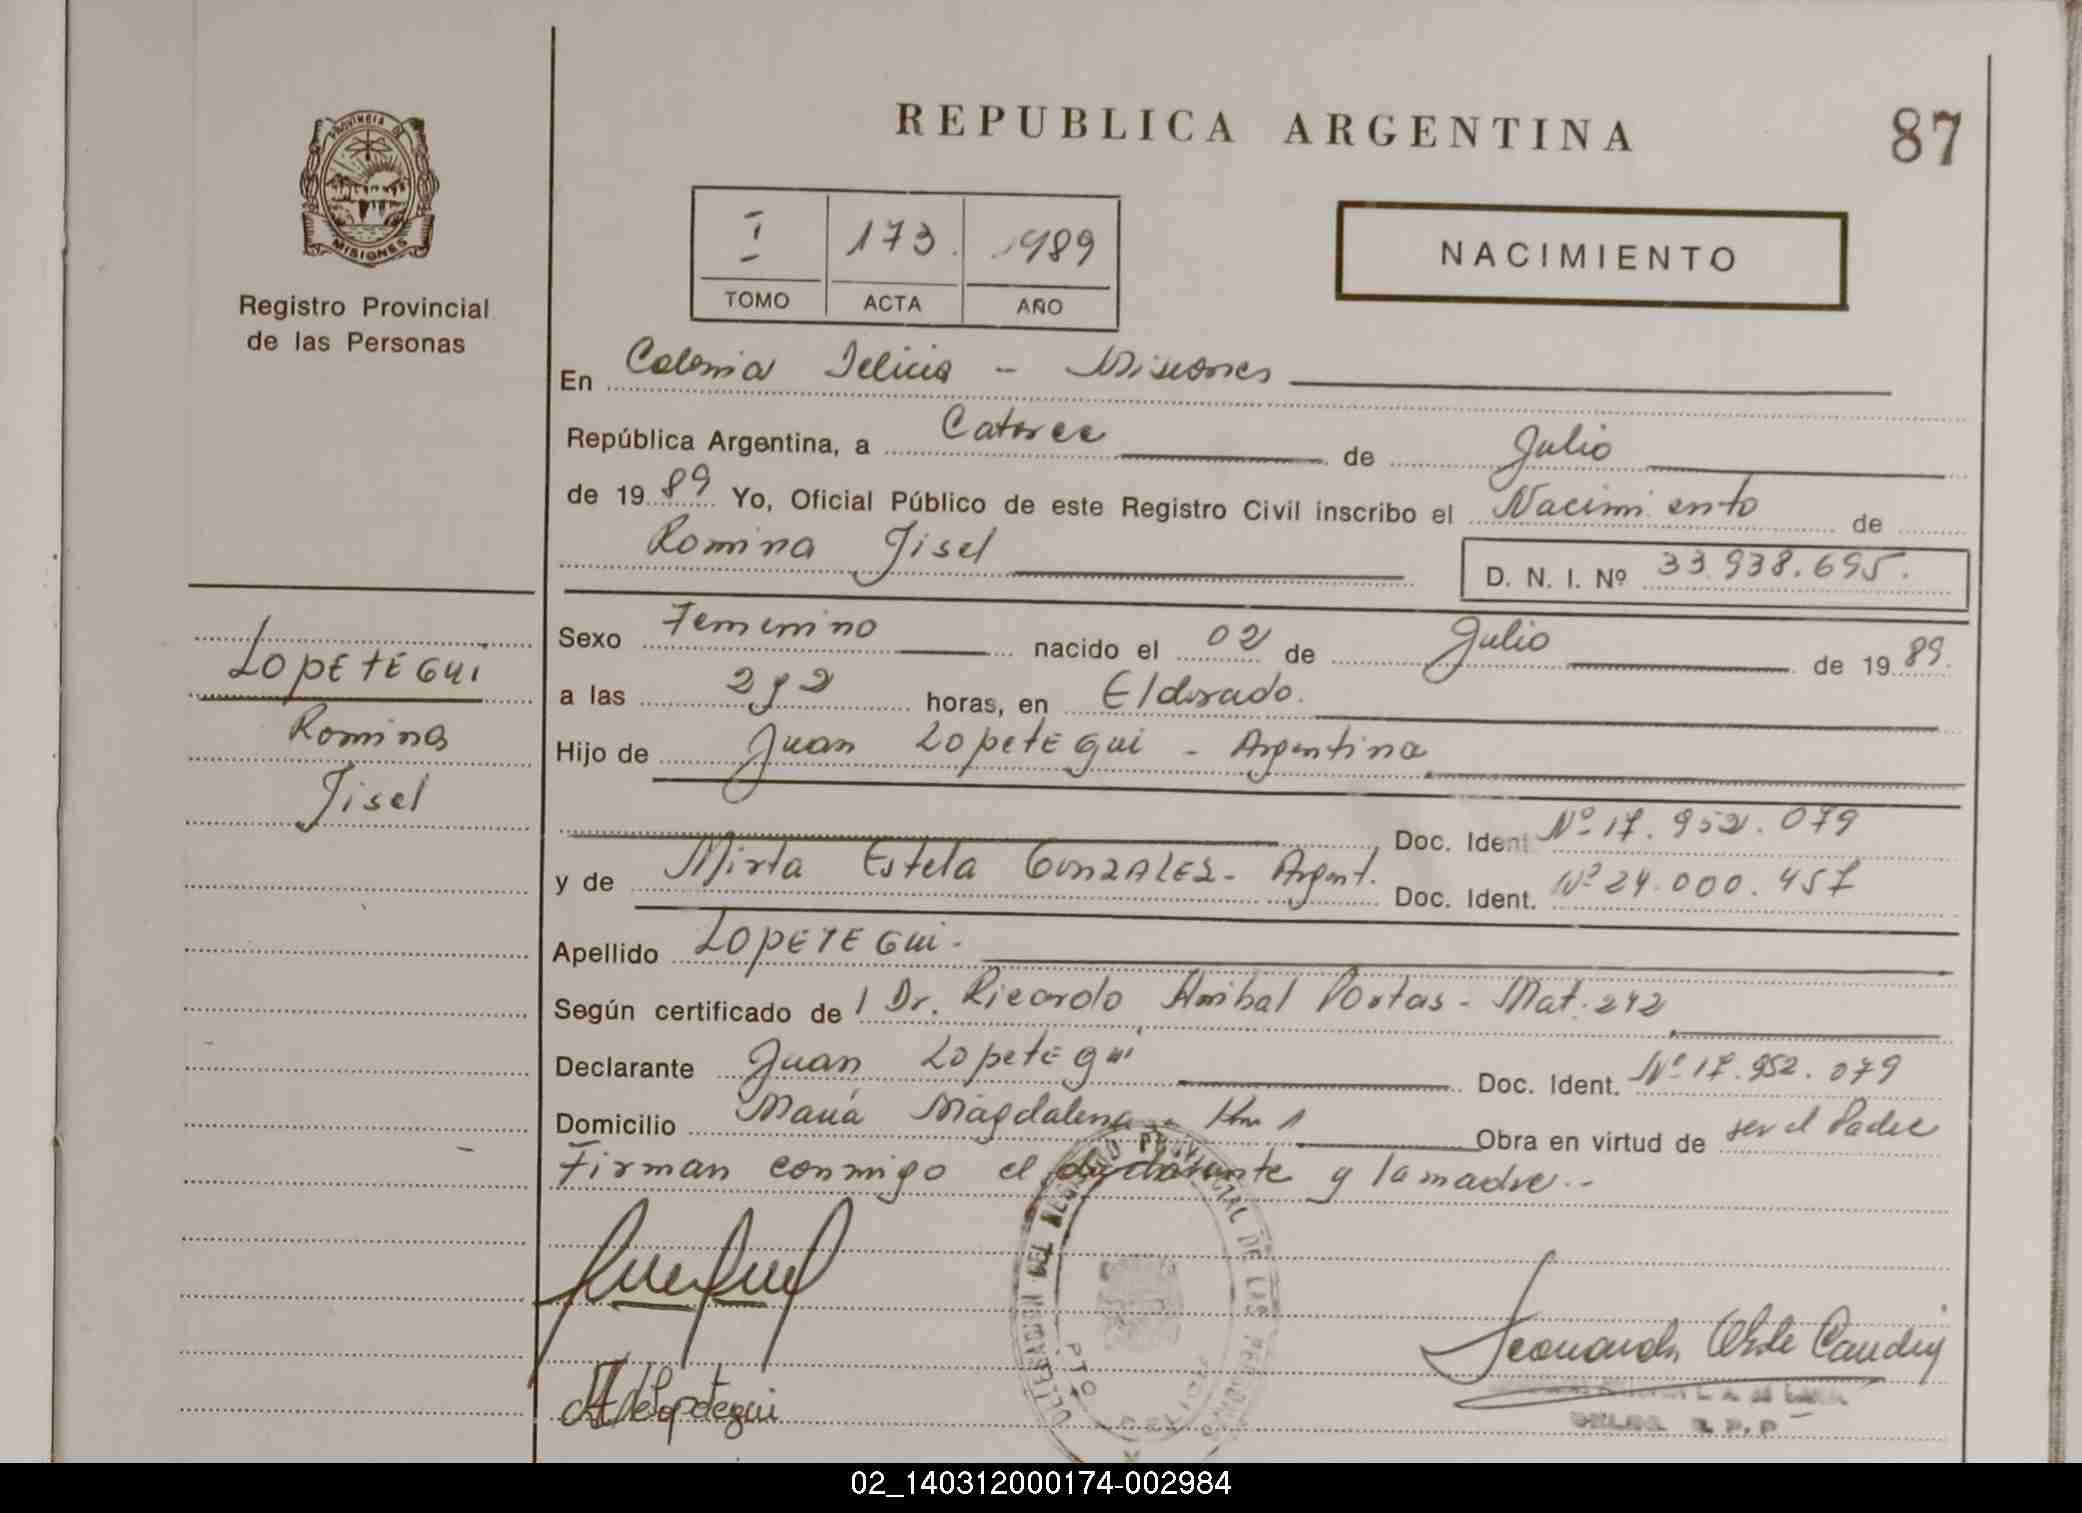 PROVINCIA DE
MISIONES
Registro Provincial
de las Personas
LOPETEGUI
Romina
Jisel
REPUBLICA ARGENTINA
87
I 173. 1989
TOMO ACTA AÑO
NACIMIENTO
En Colonia Delicia - Misiones
República Argentina, a Catorce de Julio
de 19 89 Yo, Oficial Público de este Registro Civil inscribo el Nacimiento de
Romina Jisel D. N. I. Nº 33.938.695.
Sexo Femenino nacido el 02 de Julio de 19 89.
a las 2 y 2 horas, en Eldorado.
Hijo de Juan Lopetegui - Argentina
Doc. Ident Nº 17.952.079
y de Mirta Estela GONZALEZ - Argent. Doc. Ident. Nº 24.000.457
Apellido LOPETEGUI.
Según certificado de l Dr. Ricardo Anibal Portas - Mat. 242
Declarante Juan Lopetegui Doc. Ident. Nº 17.952.079
Domicilio María Magdalena - Km 1 Obra en virtud de ser el Padre
Firman conmigo el declarante y la madre.-
DELEGACION DEL REGISTRO PROVINCIAL DE LAS PERSONAS
PTO DELICIA
02_140312000174-002984